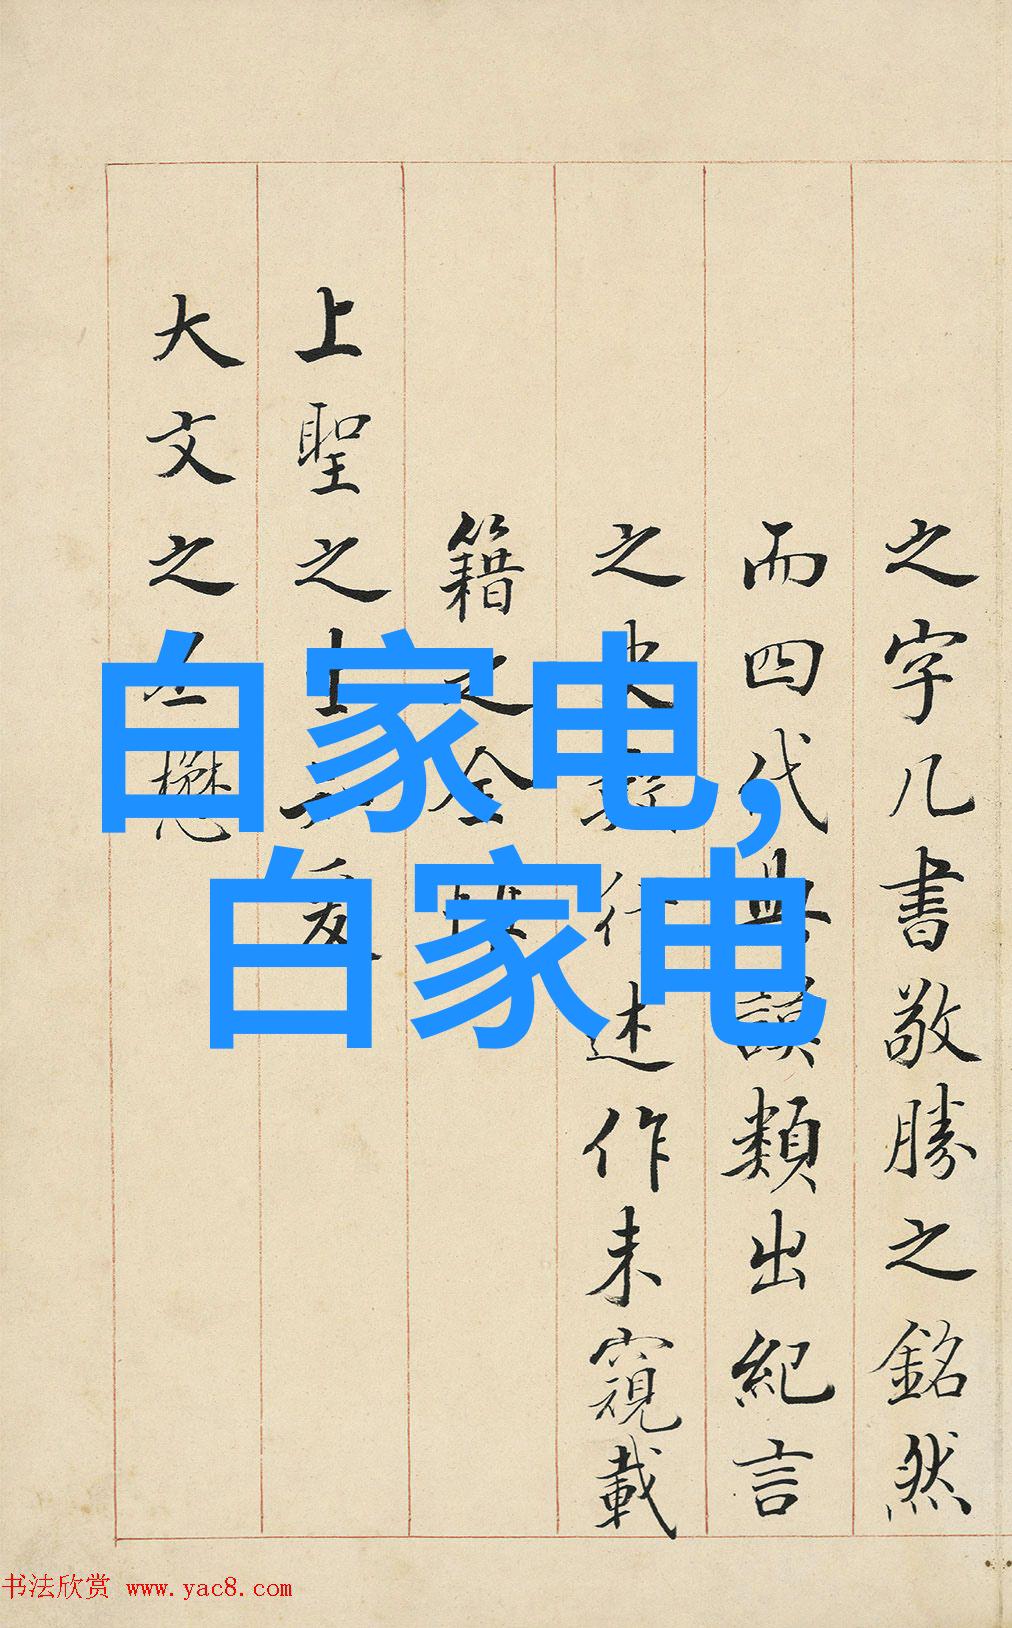 之字几書敬勝之銘然
而四代典謨類出紀言
之史行述作未窺載
籍之全
上聖之
大文之懋
白家电,
白家电
书法欣赏 www.yac8.com